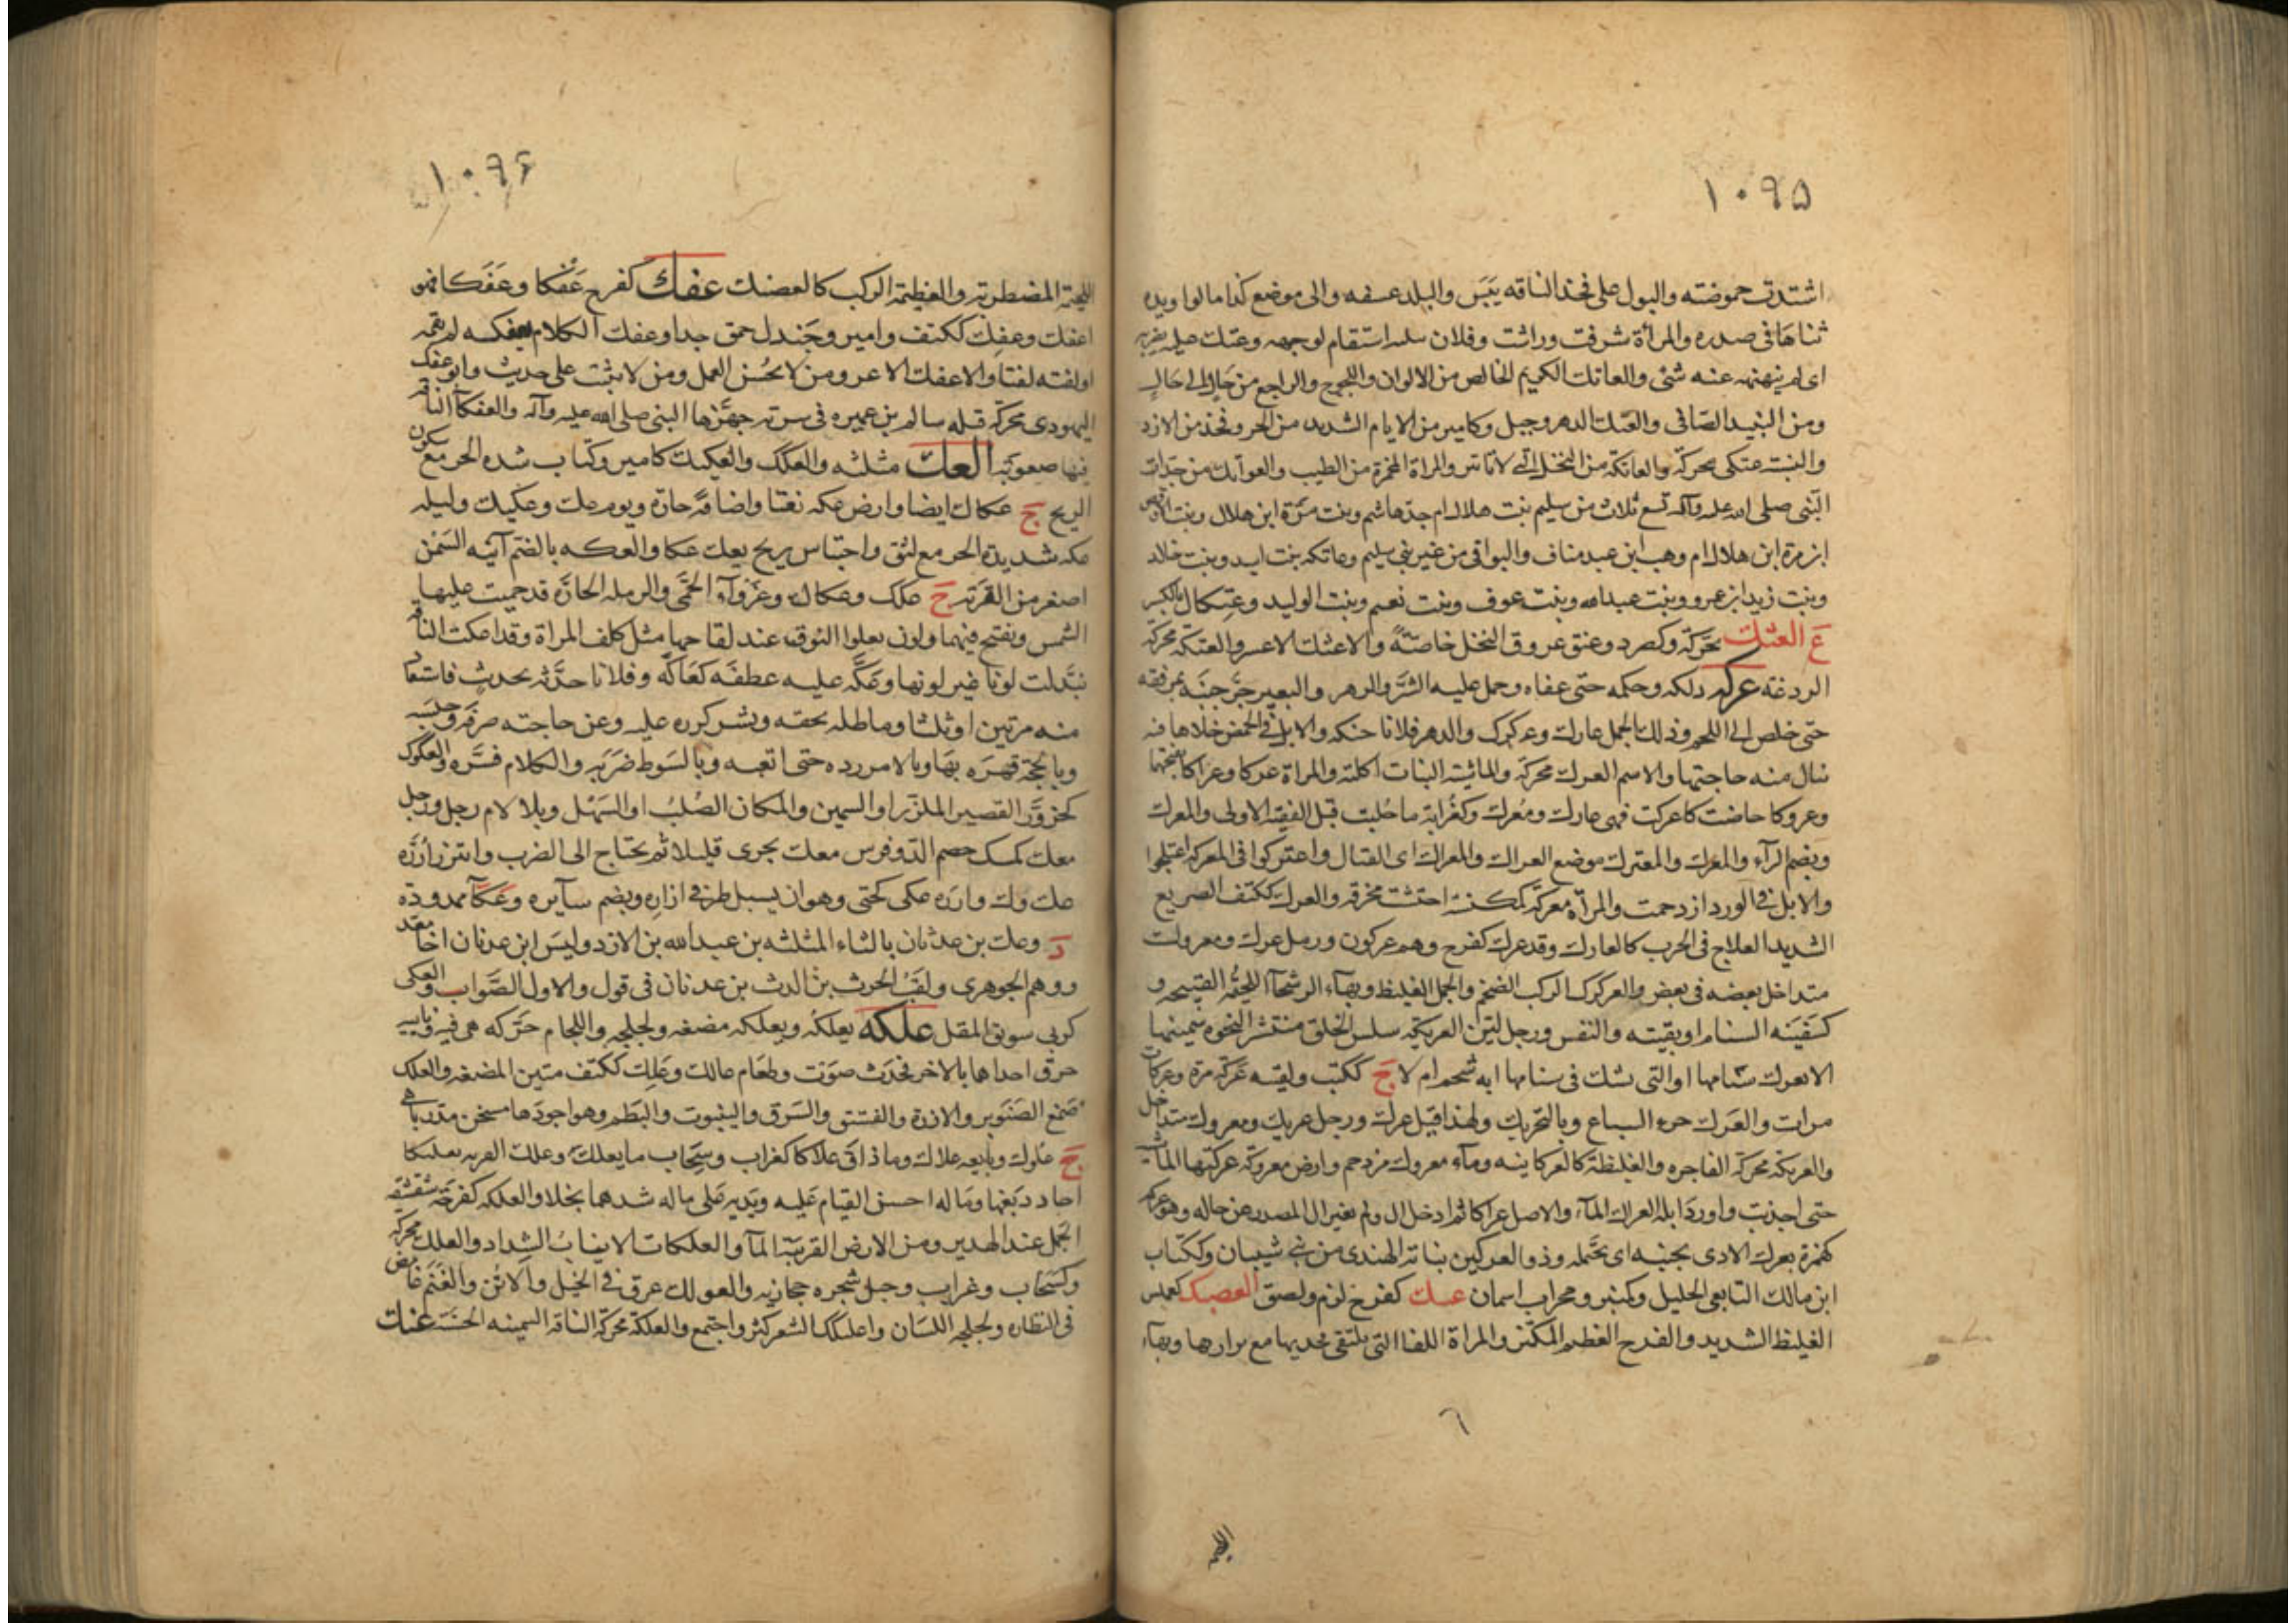 ١٠٩۵
اشتدت حموضته والبول على فخذ الناقه يَبَس والبلد عسفه والى موضع كذا مالوا ويده
ثناها فى صدره والمرأة شرفت ورائت وفلان استقام لوجهه وعتك عليه يضربه
اى لم ينهنهه عنه شئ والعاتك الكريم الخالص من الالوان واللجوج والراجع من حال الى حالٍ
ومن النبيد الصّافى والعتك الدهر وجبل وكامير من الايام الشديد من الحر وفخذ من الازد
والنسبته عتكى محركة والعاتكة من النخل التى لا تاتبر والمراة المحمرة من الطيب والعواتك من جدات
النّبى صلى الله عليه وآله تسع ثلاث من سليم بنت هلال ام جد هاشم وبنت مرّة ابن هلال وبنت الاوقص
ابن مرة ابن هلال ام وهب ابن عبد مناف والبواقى من غير بنى سليم وعاتكه بنت اسيد وبنت خلاد
وبنت زيد ابن عمرو وبنت عبدالله وبنت عوف وبنت نعيم وبنت الوليد وعِتكال بالكسر
ع العثك محرّكة وكصرد وعنق عروق النخل خاصّةً والاعثك الاعسر والعثكة محركة
الردغة عركه دلكه وحكمه حتى عفاه وحمل عليه الشرّ والدهر والبعير حزّ جنبَه بمرفقه
حتى خلص الى اللحم وذلك الجمل عارك وعركرك والدهر فلانا حنكه والابل فى الحمض خلاها فيه
تنال منه حاجتها والاسم العرك محركة والماشية النبات اكلته والمراة عركا وعراكا بفتحهما
وعروكا حاضت كاعركت فهى عارك ومُعرك وكغُرابة ما حُلبت قبل الفيقة الاولى والمعرك
وبضم الرآء والمعرك والمعترك موضع العراك والمعراك اى القتال واعتركوا فى المعركه اعتلجوا
والابل فى الورد ازدحمت والمرأة معركة كمحسنة احتشت بخرقه والعرك ككتف الصريع
الشديد العلاج فى الحرب كالعارك وقد عرك كفرح وهم عركون ورمل عرك ومعروك
متداخل بعضه فى بعض والعركرك الركب الضخم والجمل الغليظ وبهآء الرشحآ اللحيمة القبيحه و
كسفينه السنام او بقيته والنفس ورجل لين العريكه سلس الخلق منكسر النخوه
الا بعرك سنامها او التى يشك فى سنامها ابه شحم ام لا ج ككتب ولقيه عَركة مرة وعركات
مرات والعَرك خرء السباع وبالتحريك ولهذا قيل عرك ورجل عريك ومعروك متداخل
والعركة محركة الفاجره والغليظة كالعركاينه ومآء معروك مزدحم وارض معروكة عركتها الماشية
حتى اجدبت واورد ابله العراك المآء والاصل عراكا ثم ادخل ال ولم يغير ال المصدر عن حاله وهو عركه
كهمزة يعرك الاذى بجنبه اى يحتمله وذو العركين نباتة الهندى من بنى شيبان وككتاب
ابن مالك التابعى الجليل وكمنبر ومحراب اسمان عسك كفرح لزم ولصق العضنك كعملس
الغليظ الشديد والفرج العظيم المكتنز والمراة اللفا التى يلتقى فخذيها مع بوادها وبهآء
٦
١٠٩۶
اللحيمة المضطربه والعظيمة الركب كالعضنك عفك كفرح عَفكا وعَفَكا فهو
اعفك وعفِك ككتف وامير وجَندل حمق جدا وعفك الكلام يعفكه لم يقمه
او لفته لفتا والاعفك الاعسر ومن لا يحُسن العمل ومن لا يثبت على حديث وابو عفك
اليهودى محركة قتله سالم بن عميره فى سرية جهّزها النبى صلى الله عليه وآله والعفكآ الناقه
فيها صعوبَة العك مثلثه والعكك والعكيك كامير وكتاب شده الحر مع سكون
الريح ج عكاك ايضا وارض عكه نعتا واضافةً حارّه ويوم عك وعكيك وليله
عكه شديدة الحر مع لثق واحتباس ريح يعك عكا والعكه بالضم آنيه السَمن
اصغر من القربة ج عكك وعكاك وعُزوآء الحمّى والرمله الحارّه قد حميت عليها
الشمس وتفتح فيهما ولون يعلوا النوق عند لقاحها مثل كلف المراة وقد اعكت الناقه
تبدّلت لونا غير لونها وعَكّه عليه عطفَه كعَاكّه وفلانا حدّثه بحديث فاستعاد
منه مرتين او ثلثا وماطله بحقه وبشر كرره عليه وعن حاجته صرفه وحبسه
وبالحجة قهَره بها وبالامر رده حتى اتعبه وبالسَوط ضرَبَه والكلام فسَّره والعكوك
كحزَوّر القصير الملزّز او السمين والمكان الصُلب او السَهل وبلا لام رجل ورجل
معك كمسك خصم الدّ وفرس معك يجرى قليلا ثم يحتاج الى الضرب وائتزر ازْرَه
عك وك وازره عكى كحتى وهو ان يسبل طرفى ازاره ويضم سآيره وعكآ ممدودة
د وعك بن عدثان بالثاء المثلثه بن عبدالله بن الازد وليس ابن عدنان اخا معد
ووهم الجوهرى ولقب الحرث بن الدث بن عدنان فى قول والاول الصَّواب والعكى
كربى سويق المقل علكه يعلكهُ ويعلكه مضغه ولجلجه واللجام حَرّكه فى فيه ونابيه
حرق احداهما بالاخر فحدث صوت وطعَام عالك وعَلِك ككتف متين المضغه والعلك
صَمغ الصَنَوبر والارزة والفستق والسَرو والينبوت والبَطم وهو اجودها مسخن مدرّ باهى
ج عُلوك وبايعه علاك وما ذاق علاكا كغراب وسَحاب ما يعلك وعلك القربه تعليكا
اجاد دبغها وماله احسن القيام عَليه ويديه على ماله شدهما بخلا والعلكه كفرحَة شقشقه
الجَمل عند الهدير ومن الارض القريبة المآ والعلكات الانيابُ الشِداد والعلك محركه
وكسَحاب وغراب وجبل شجره حجازيه والعولك عرق فى الخيل والاتُن والغَنَم غامض
فى البظاره ولجلجه اللسَان واعلنكك الشعر كثر واجتمع والعلكة محركة الناقه السمينه الحسنَه عنك